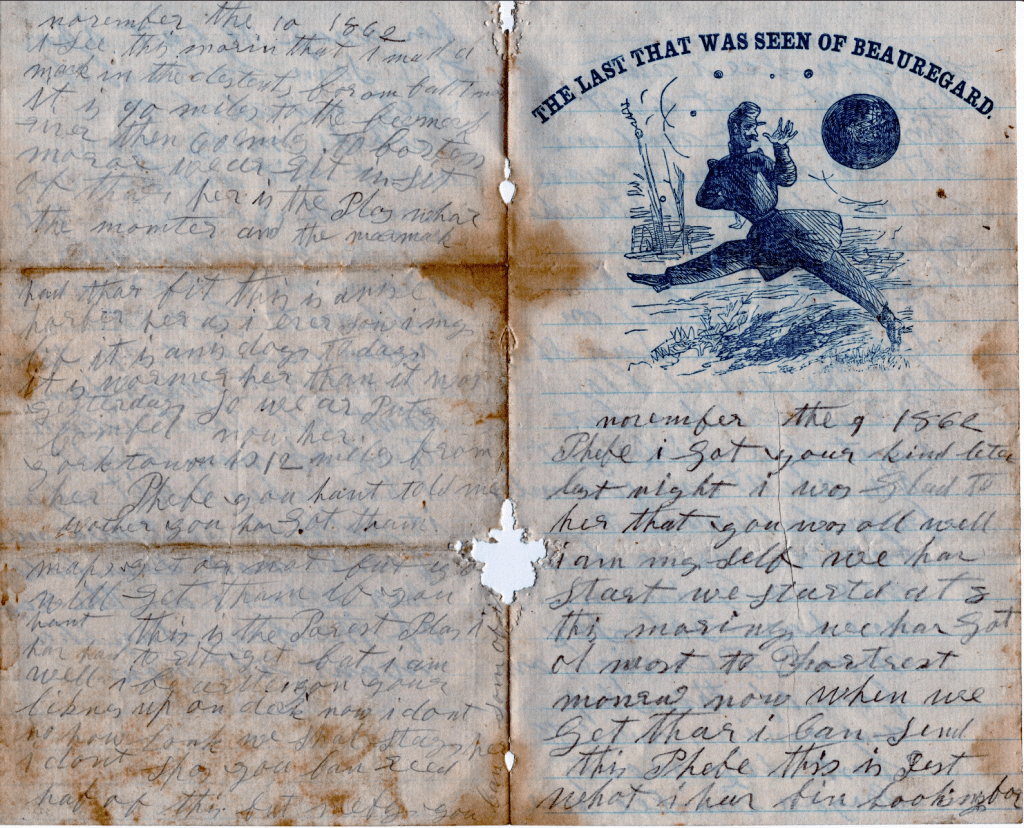 THE LAST THAT WAS SEEN OF BEAUREGARD.
november the 9 1862
Phebe i got your kind leter
last night i was glad to
her that you was all well
i am my self we har
start we startd at 8
thi moring we har got
ol most to
monrow now when we
get thar i can send
this Phebe this is Jest
what i har bin looking for
november the 10 1862
i see this morin that i mad a
mark in the destents from
it is 90 miles to the
over then 60 mile to
we ar git in sit
of thar her is the Plas whare
the moniter and the marmack
had thar fit this is a nise
harber her as i ever sin in my
lif it is a nis day to day
it is warmer her than it was
yesterday so we ar Puty
now her.
yorktown is 12 miles from
her Phebe you hant told me
wother you har got tham
maps yet or not but you
will get tham if you
hant this is the Porest Plas i
har had to set yet but i am
well i
up on dock now i dont
no how long we shal stay her
i dont spos you can reed
haf of this but you